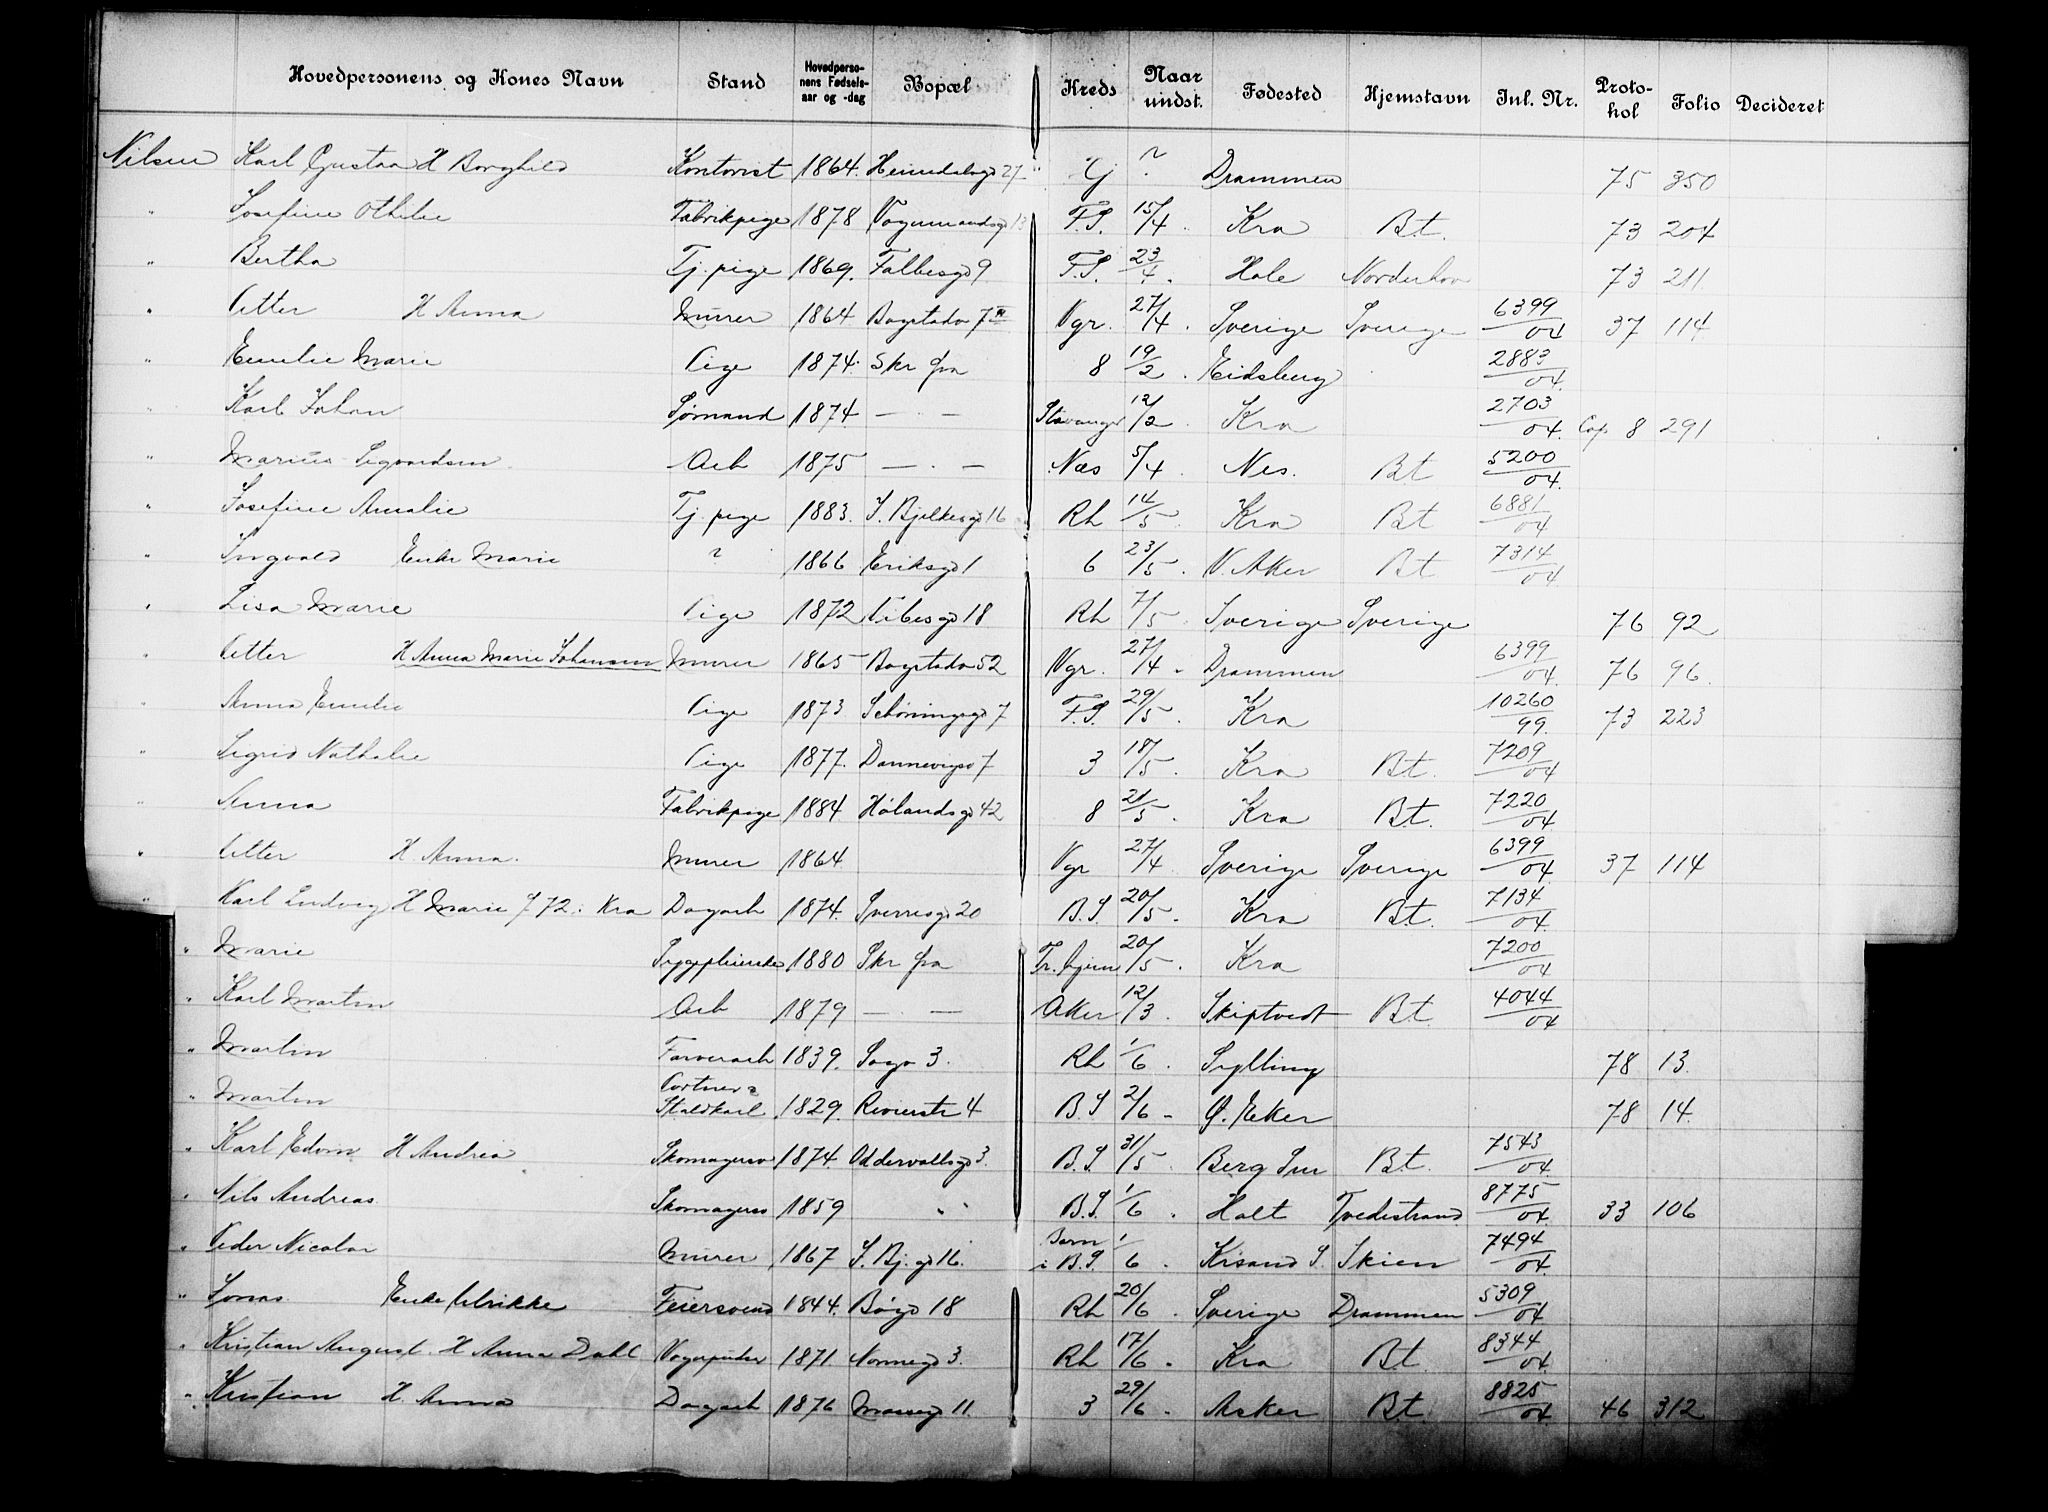 Hovedpersonens og Kones Navn Stand Hovedpersonens Fødselsaar og -dag Bopæl Kreds Naar undst. Fødested Hjemstavn Inl. Nr. Protokol Folio Decideret
Nilsen Karl Gustav H Borghild Kontorist 1864. Heimdalsgd 27 Gj ? Drammen 75 350
" Josefine Othilie Fabrikpige 1878 Vognmandsgd 13 F.S. 15/4 Kra Bt. 73 204
" Bertha Tj. pige 1869. Falbesgd 9. F.S. 23/4 Hole Norderhov 73 211
" Petter H Anna Murer 1864 Bogstadv 7 Vgr. 27/4 Sverige Sverige 6399/04 37 114
" Emilie Marie Pige 1874. Skr fra 8 19/2 Eidsberg 2883/04.
" Karl Johan Sømand 1874 — — Stavanger 12/2 Kra 2703/04. Cop. 8 291
" Marius Sigvardsen Arb 1875 — . — Næs 5/4 Nes. Bt 5200/04.
" Josefine Amalie Tj. pige 1883. J. Bjelkesgd 16 Rh 14/5 Kra Bt 6881/04
" Ingvald Enke Marie ? 1866 Eriksgd 1 6 23/5 V. Aker Bt 7314/04.
" Lisa Marie Pige 1872 Vibesgd 18 Rh 7/5 Sverige Sverige 76 92
" Petter H Anna Marie Johansen Murer 1865 Bogstadv 52 Vgr. 27/4 Drammen 6399/04. 76 96.
" Anna Emilie Pige 1873 Schøningsgd 7 F.S. 29/5 Kra 10260/99. 73 223
" Sigrid Nathalie Pige 1877. Dannevigsv 7 3 18/5 Kra Bt. 7209/04
" Anna Fabrikpige 1884 Hølandsgd 42 8 21/5 Kra Bt. 7220/04
" Petter H. Anna. Murer 1864 Vgr 27/4 Sverige Sverige 6399/04 37 114
" Karl Ludvig H Marie f 72 i Kra Dagarb 1874. Sverresgd 20 B.S 20/5 Kra Bt. 7134/04.
" Marie Sygepleierske 1880 Skr fra Tr. hjem 20/5 Kra 7200/04
" Karl Martin Arb 1879 — . — Aker 12/3 Skiptvedt Bt. 4044/04
" Martin Farverarb 1839. Sagv 3. Rh 1/6 Sylling 78 13.
" Martin Portner & Staldkarl 1829. Revierstr 4 B.S 2/6 Ø. Eker 78 14.
" Karl Edvin H Andrea Skomagersv 1874. Uddevallagd 3. B.S 31/5 Berg Sm Bt. 7543/04.
" Nils Andreas Skomagersv 1859 " " B.S. 1/6 Holt Tvedestrand 8775/04. 33 106
" Peder Nicolai Murer 1867 J. Bj. gd 16. Barn i B.S. 1/6 Krsand S. Skien 7494/04.
" Jonas Enke Ulrikke Feiersvend 1844. Bøgd 18 Rh 20/6 Sverige Drammen 5309/04
" Kristian August. H Anna Dahl 1871 Normegd 3. Rh 17/6 Kra Bt. 8344/04
" Kristian H. Anna Dagarb 1876 Massegd 11. 3 29/6 Asker Bt. 8825/04 46 312